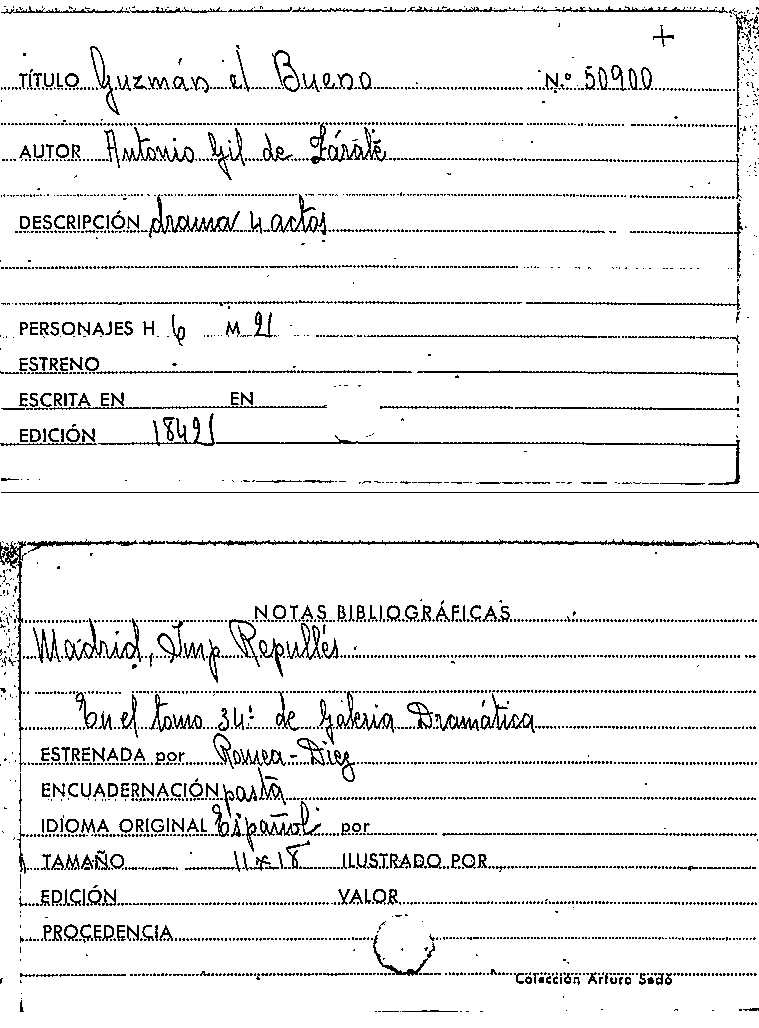 +
TÍTULO Guzmán el Bueno N.º 50900
AUTOR Antonio Gil de Zárate
DESCRIPCIÓN drama 4 actos
PERSONAJES H 6 M 2
ESTRENO
ESCRITA EN EN
EDICIÓN 1842
NOTAS BIBLIOGRÁFICAS
Madrid, Imp Repullés.
En el tomo 34º de Galeria Dramática
ESTRENADA por Romea-Díez
ENCUADERNACIÓN pasta
IDIOMA ORIGINAL Español por
TAMAÑO 11x18 ILUSTRADO POR
EDICIÓN VALOR
PROCEDENCIA
Colección Arturo Sedó